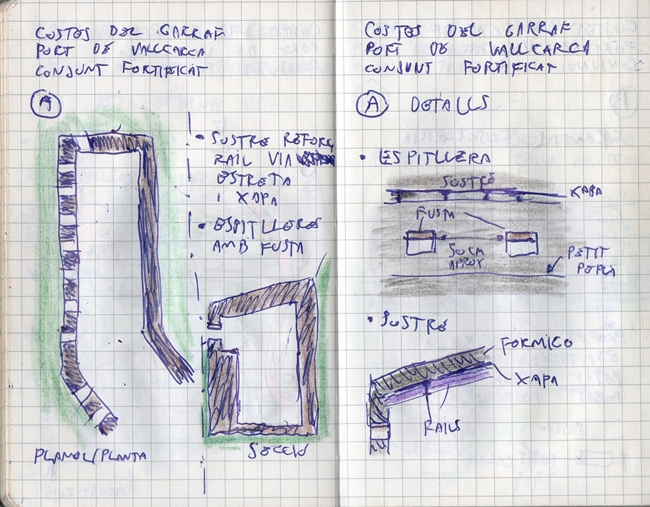 COSTES DEL GARRAF
PORT DE VALLCARCA
CONJUNT FORTIFICAT
A
• SOSTRE REFORÇ
RAIL VIA
ESTRETA
I XAPA
• ESPITLLERES
AMB FUSTA
PLANOL/PLANTA
SECCIÓ
COSTES DEL GARRAF
PORT DE VALLCARCA
CONJUNT FORTIFICAT
A DETALLS
• ESPITLLERA
SOSTRE
XAPA
FUSTA
50CM
APROX
PETIT
• SOSTRE
FORMIGO
XAPA
RAILS